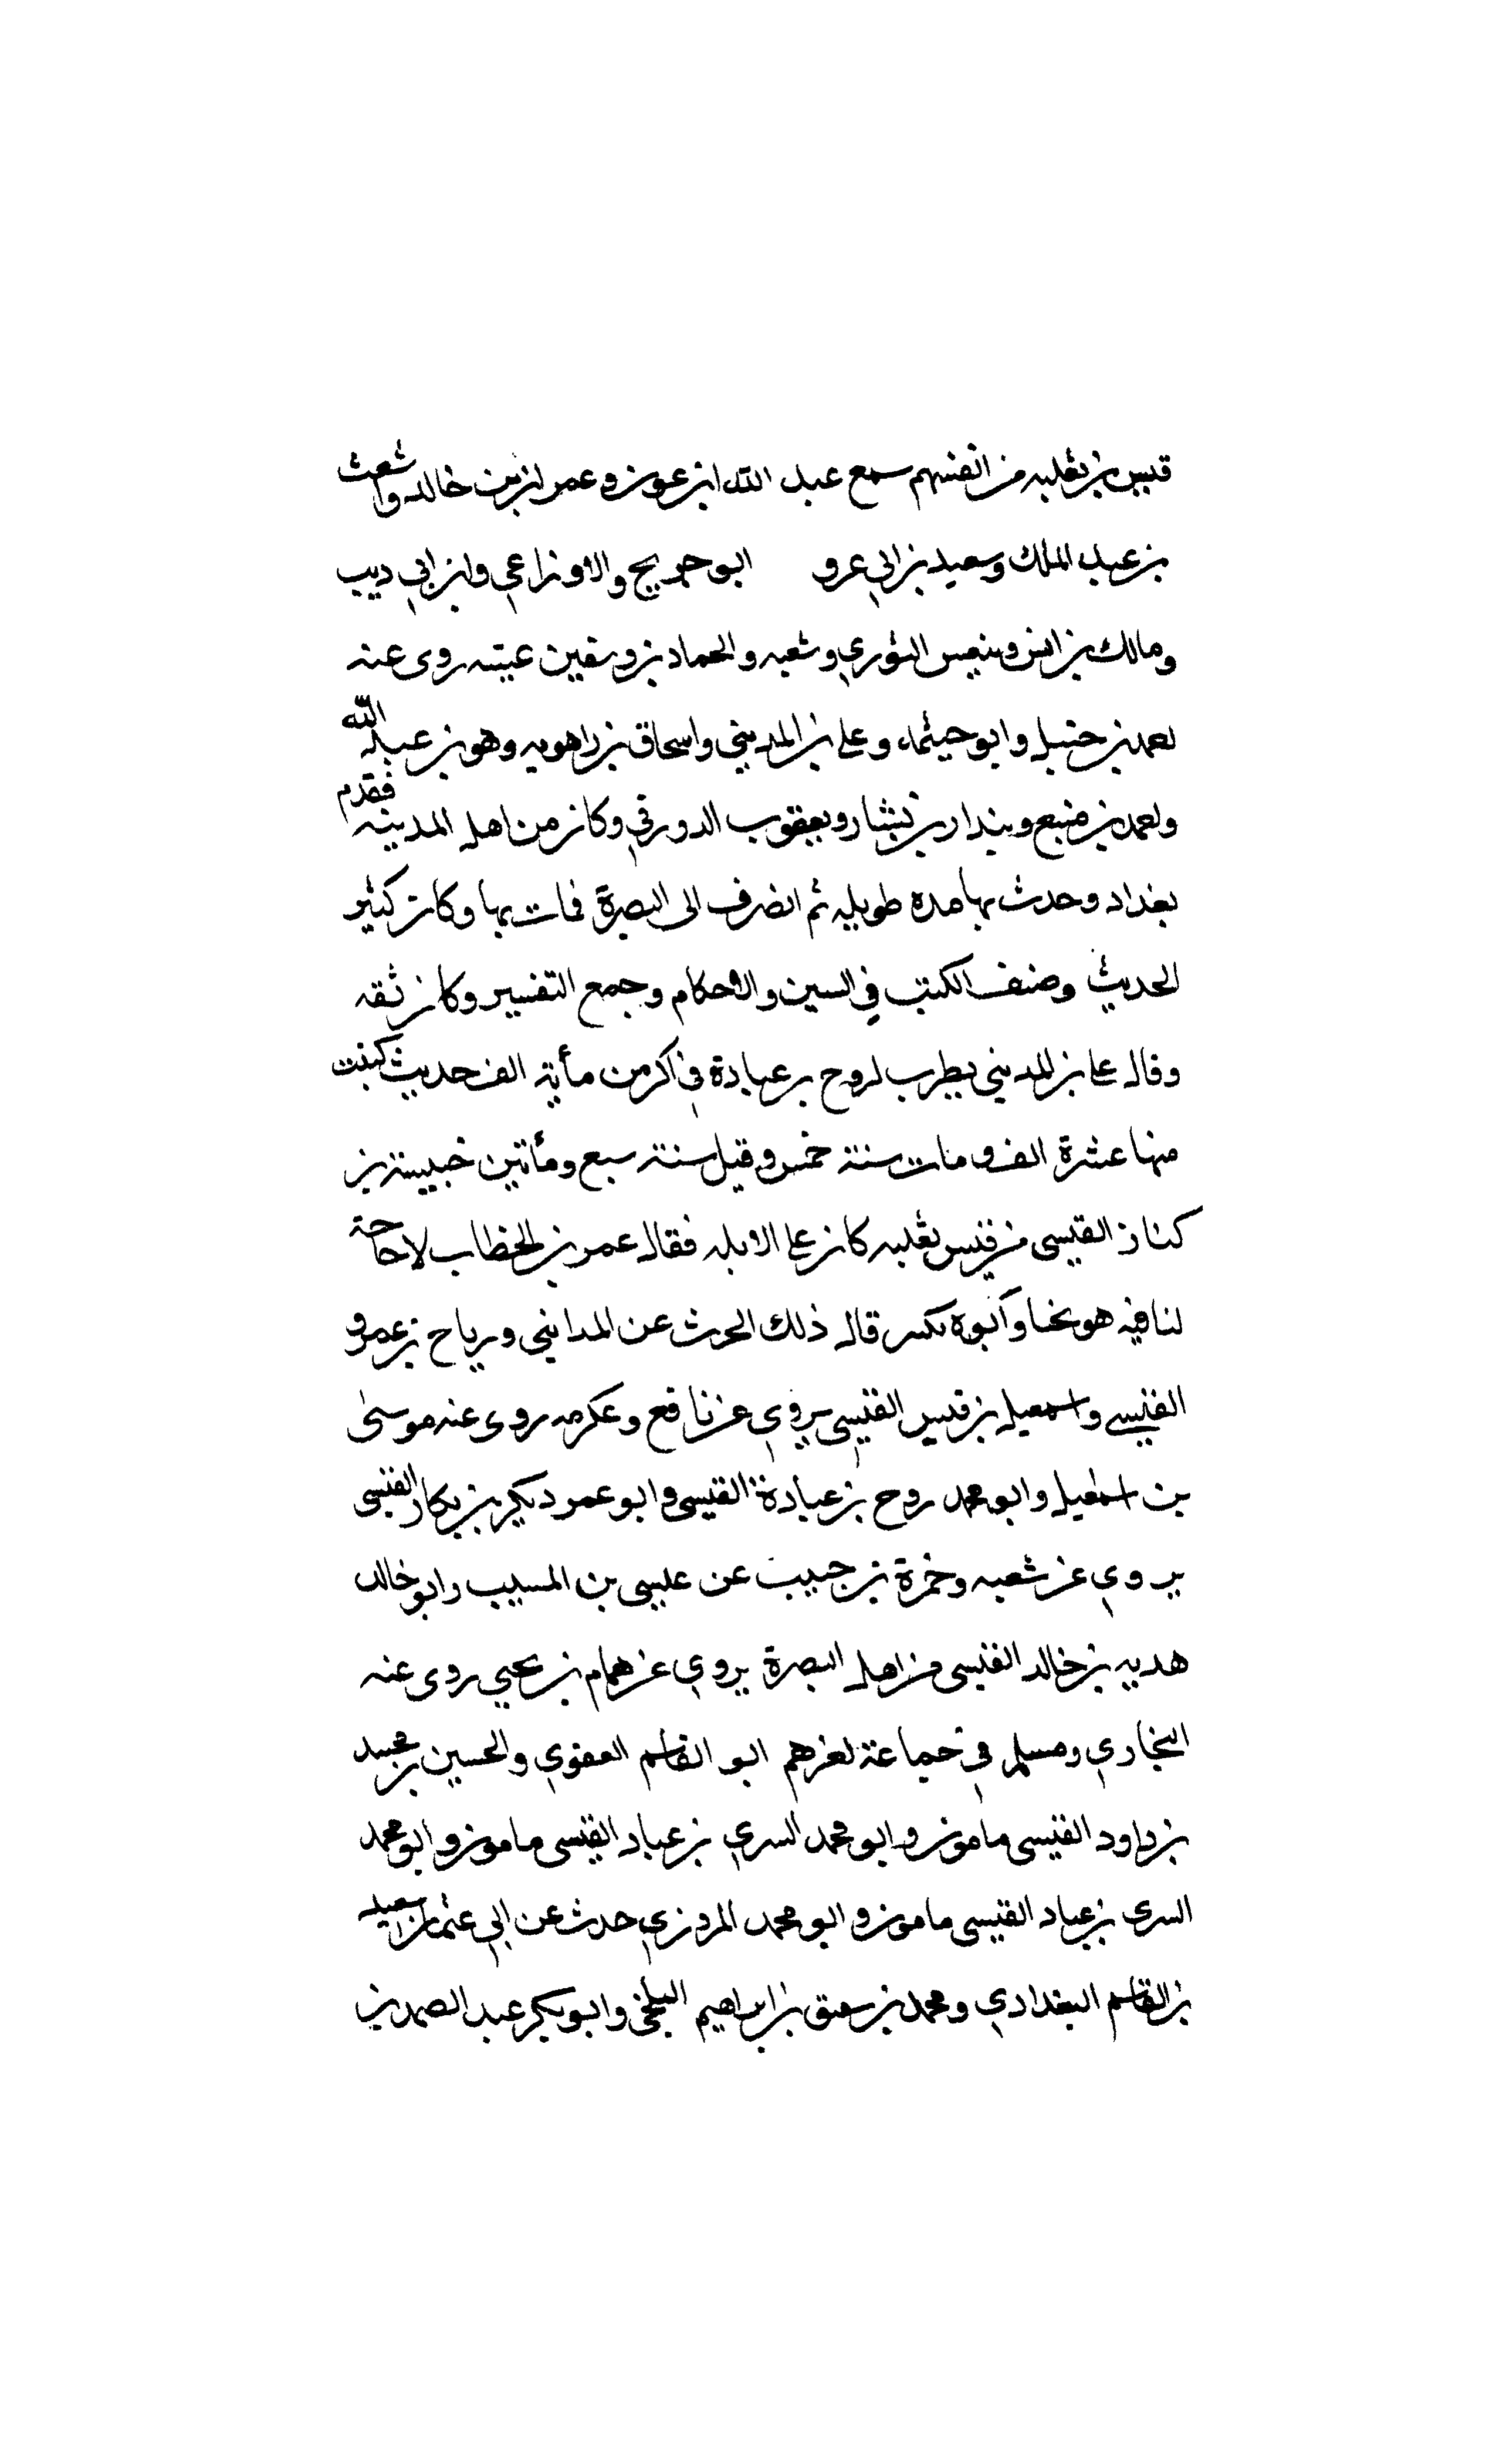 قيس بن ثعلبه من انفسهم سمع عبد الله ابن عون وعمران بن خالد واشعث
بن عبد الملك وسعيد بن ابي عرو ابو جريج والاوزاعي وابن ابي ديب
ومالك بن انس وسفين الثوري وشعبه والحمادين وسفين عيينه روى عنه
احمد بن حنبل وابو حيثماء وعلى بن المديني واسحاق بن راهويه وهو بن عبد الله
واحمد بن منيع وبندار بن بشار ويعقوب الدورقي وكان من اهل المدينه فقدم
بغداد وحدث بها مده طويله ثم انصرف الى البصرة فمات بها وكان كثير
الحديث وصنف الكتب في السين والاحكام وجمع التفسير وكان ثقه
وقال على بن المديني نظرت لروح بن عبادة في اكر من مأية الف حديث كتبت
منها عشرة الف ومات سنة خمس وقيل سنة سبع ومأتين خبيبة بن
كناز القيسى من قيس ثعلبه كان على الابله فقال عمر بن الخطاب لا حاجة
لنا فيه هو يخبا وابوه يكنز قال ذلك الحرث عن المدايني ورياح بن عمرو
القيسي واسمعيل بن قيس القيسي يروي عن نافع وعكرمه روى عنه موسى
بن اسمعيل وابو محمد روح بن عبادة القيسى وابو عمرو بكر بن بكار القيسى
يروي عن شعبه وحمزة بن حبيب عن عليسى بن المسيب وابو خالد
هدبه بن خالد القيسى من اهل البصرة يروي عن همام بن يحيي روى عنه
البخاري ومسلم في جماعة اخرهم ابو القاسم البغوي والحسين بن محمد
بن داود القيسى مامون وابو محمد السري بن عباد القيسى مامون وابو محمد
السرى بن عباد القيسى مامون وابو محمد المروزي حدث عن ابي عثمان سعيد
بن القاسم البغدادي ومحمد بن بن ابراهيم البلخي وابو بكر عبد الصمد بن